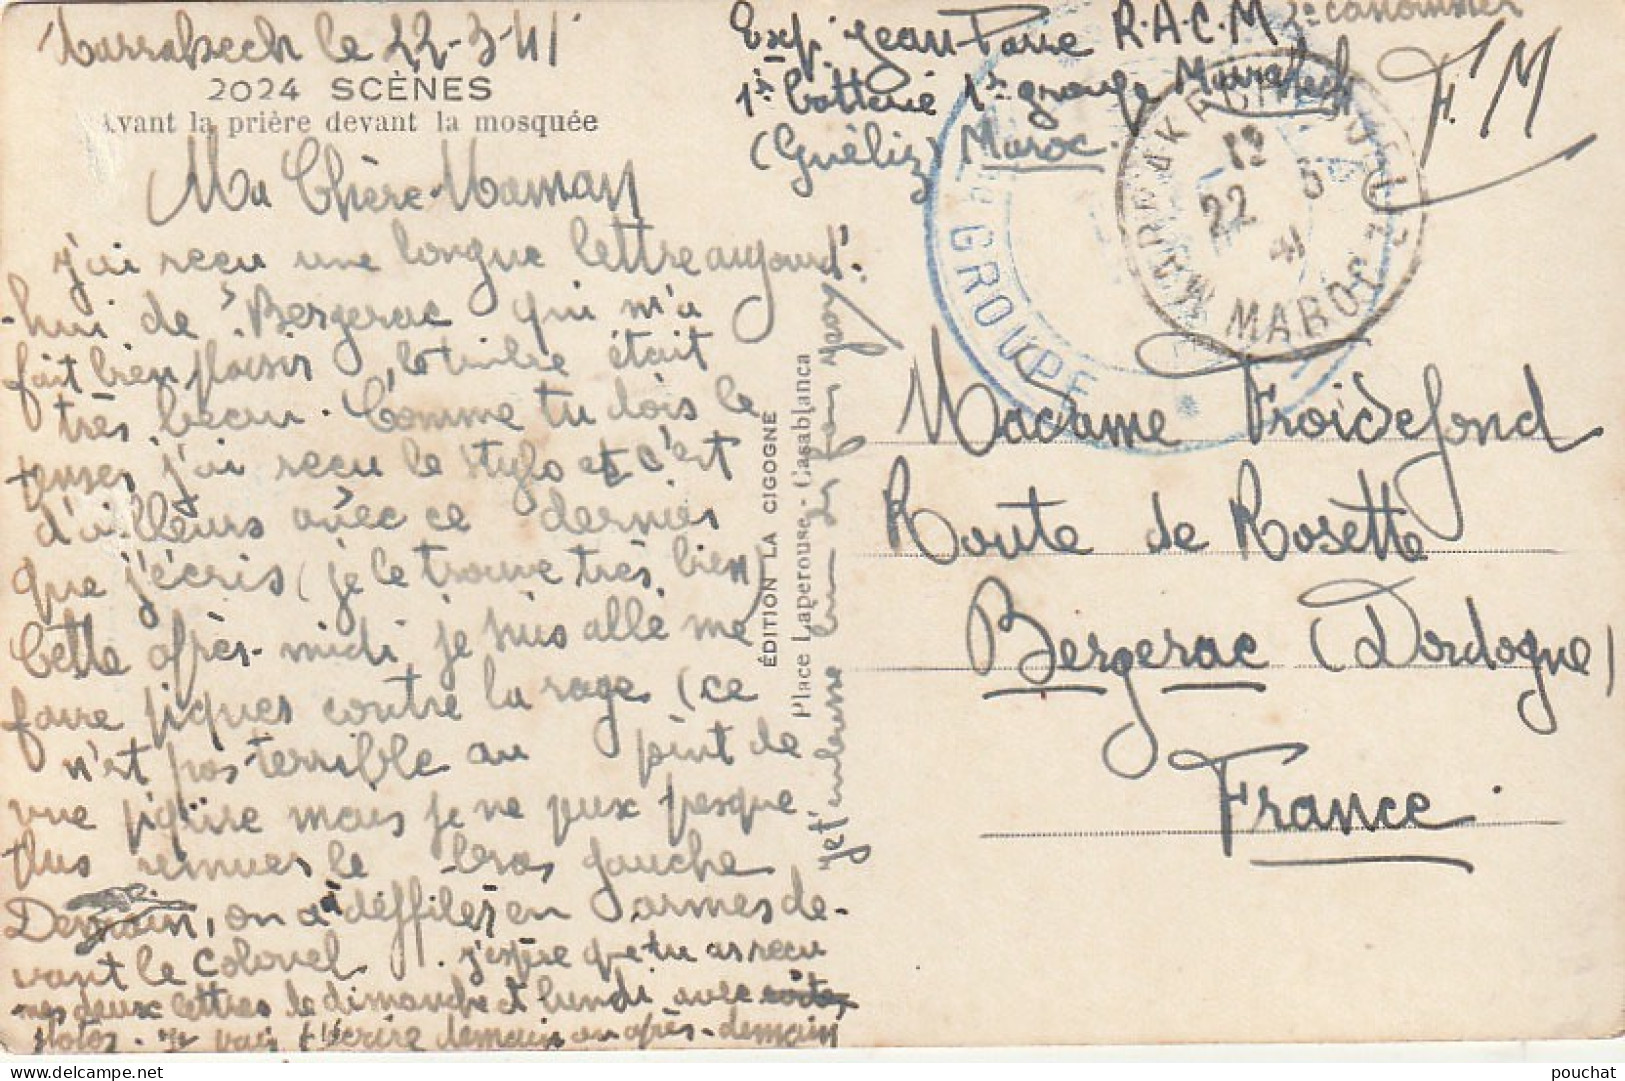 Marrakech le 22-3-41
2024 SCÈNES
Avant la prière devant la mosquée
Ma Chère Maman
j'ai reçu une longue lettre aujourd'-
-hui de Bergerac qui m'a
fait bien plaisir, le timbre était
très beau. Comme tu dois le
penser j'ai reçu le stylo et c'est
d'ailleurs avec ce dernier
que j'écris (je le trouve très bien)
Cette après-midi je suis allé me
faire piquer contre la rage (ce
n'est pas terrible au point de
vue piqûre mais je ne peux presque
plus remuer le bras gauche
Demain, on a défilé en armes de-
vant le Colonel. j'espère que tu as reçu
mes deux lettres de dimanche et lundi avec
photos. Je vais t'écrire demain ou après-demain
je t'embrasse
ÉDITION LA CIGOGNE
Place Laperouse - Casablanca
Exp. Jean-Pierre R.A.C.M 2e canonnier
1re batterie 1er groupe Marrakech
(Guéliz) Maroc.
F.M
GROUPE
MARRAKECH GUELIZ
12
22 3
41
MAROC
Madame Froidefond
Route de Rosette
Bergerac (Dordogne)
France.
delcampe.net
pouchat